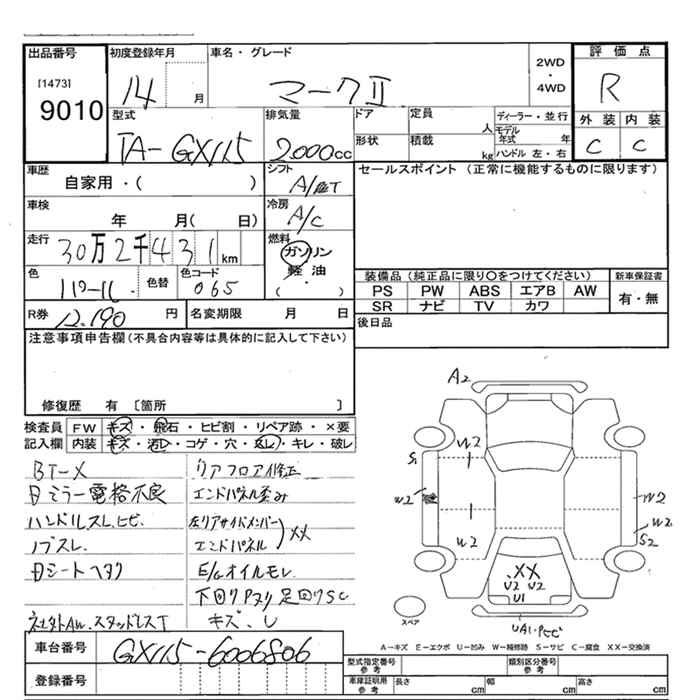 出品番号 初度登録年月 車名・グレード 2WD・4WD 評価点
[1473] 9010 14 月 マークⅡ R
外装 内装
C C
型式 排気量 ドア 定員 人 ディーラー・並行
TA-GX115 2.000cc 形状 積載 kg モデル年式 年
ハンドル 左・右
車歴 シフト セールスポイント (正常に機能するものに限ります)
自家用・( )
車検 冷房
年 月( 日) A/C
走行 燃料
30万2千431km ガソリン
色 色替 色コード 軽油
065 ( )
装備品 (純正品に限り○をつけてください) 新車保証書
PS PW ABS エアB AW 有・無
SR ナビ TV カワ
R券 12.190 円 名変期限 月 日 後日品
注意事項申告欄(不具合内容等は具体的に記入して下さい)
修復歴 有 〔箇所 〕
検査員 FW キズ・飛石・ヒビ割・リペア跡・×要
記入欄 内装 キズ・汚レ・コゲ・穴・スレ・キレ・破レ
BT-X リアフロア修正
ミラー電格不良 エンドパネル歪み
ハンドルスレ、ヒビ、 左リアサイドメンバー
ノブスレ、 エンドパネル XX
シートヘタリ E/Gオイルモレ
下回りPヌリ 足回りSC
社外AW、スタッドレスT キズ、U
A2
W2
S1
W2 W2
W2
W2 S2
XX
U2 U2
U1
スペア
A-キズ E-エクボ U-凹み W-補修跡 S-サビ C-腐食 XX-交換済
車台番号 GX115-6006806
登録番号
型式指定番号 参考 類別区分番号 参考
車庫証明用 参考 長さ cm 幅 cm 高さ cm